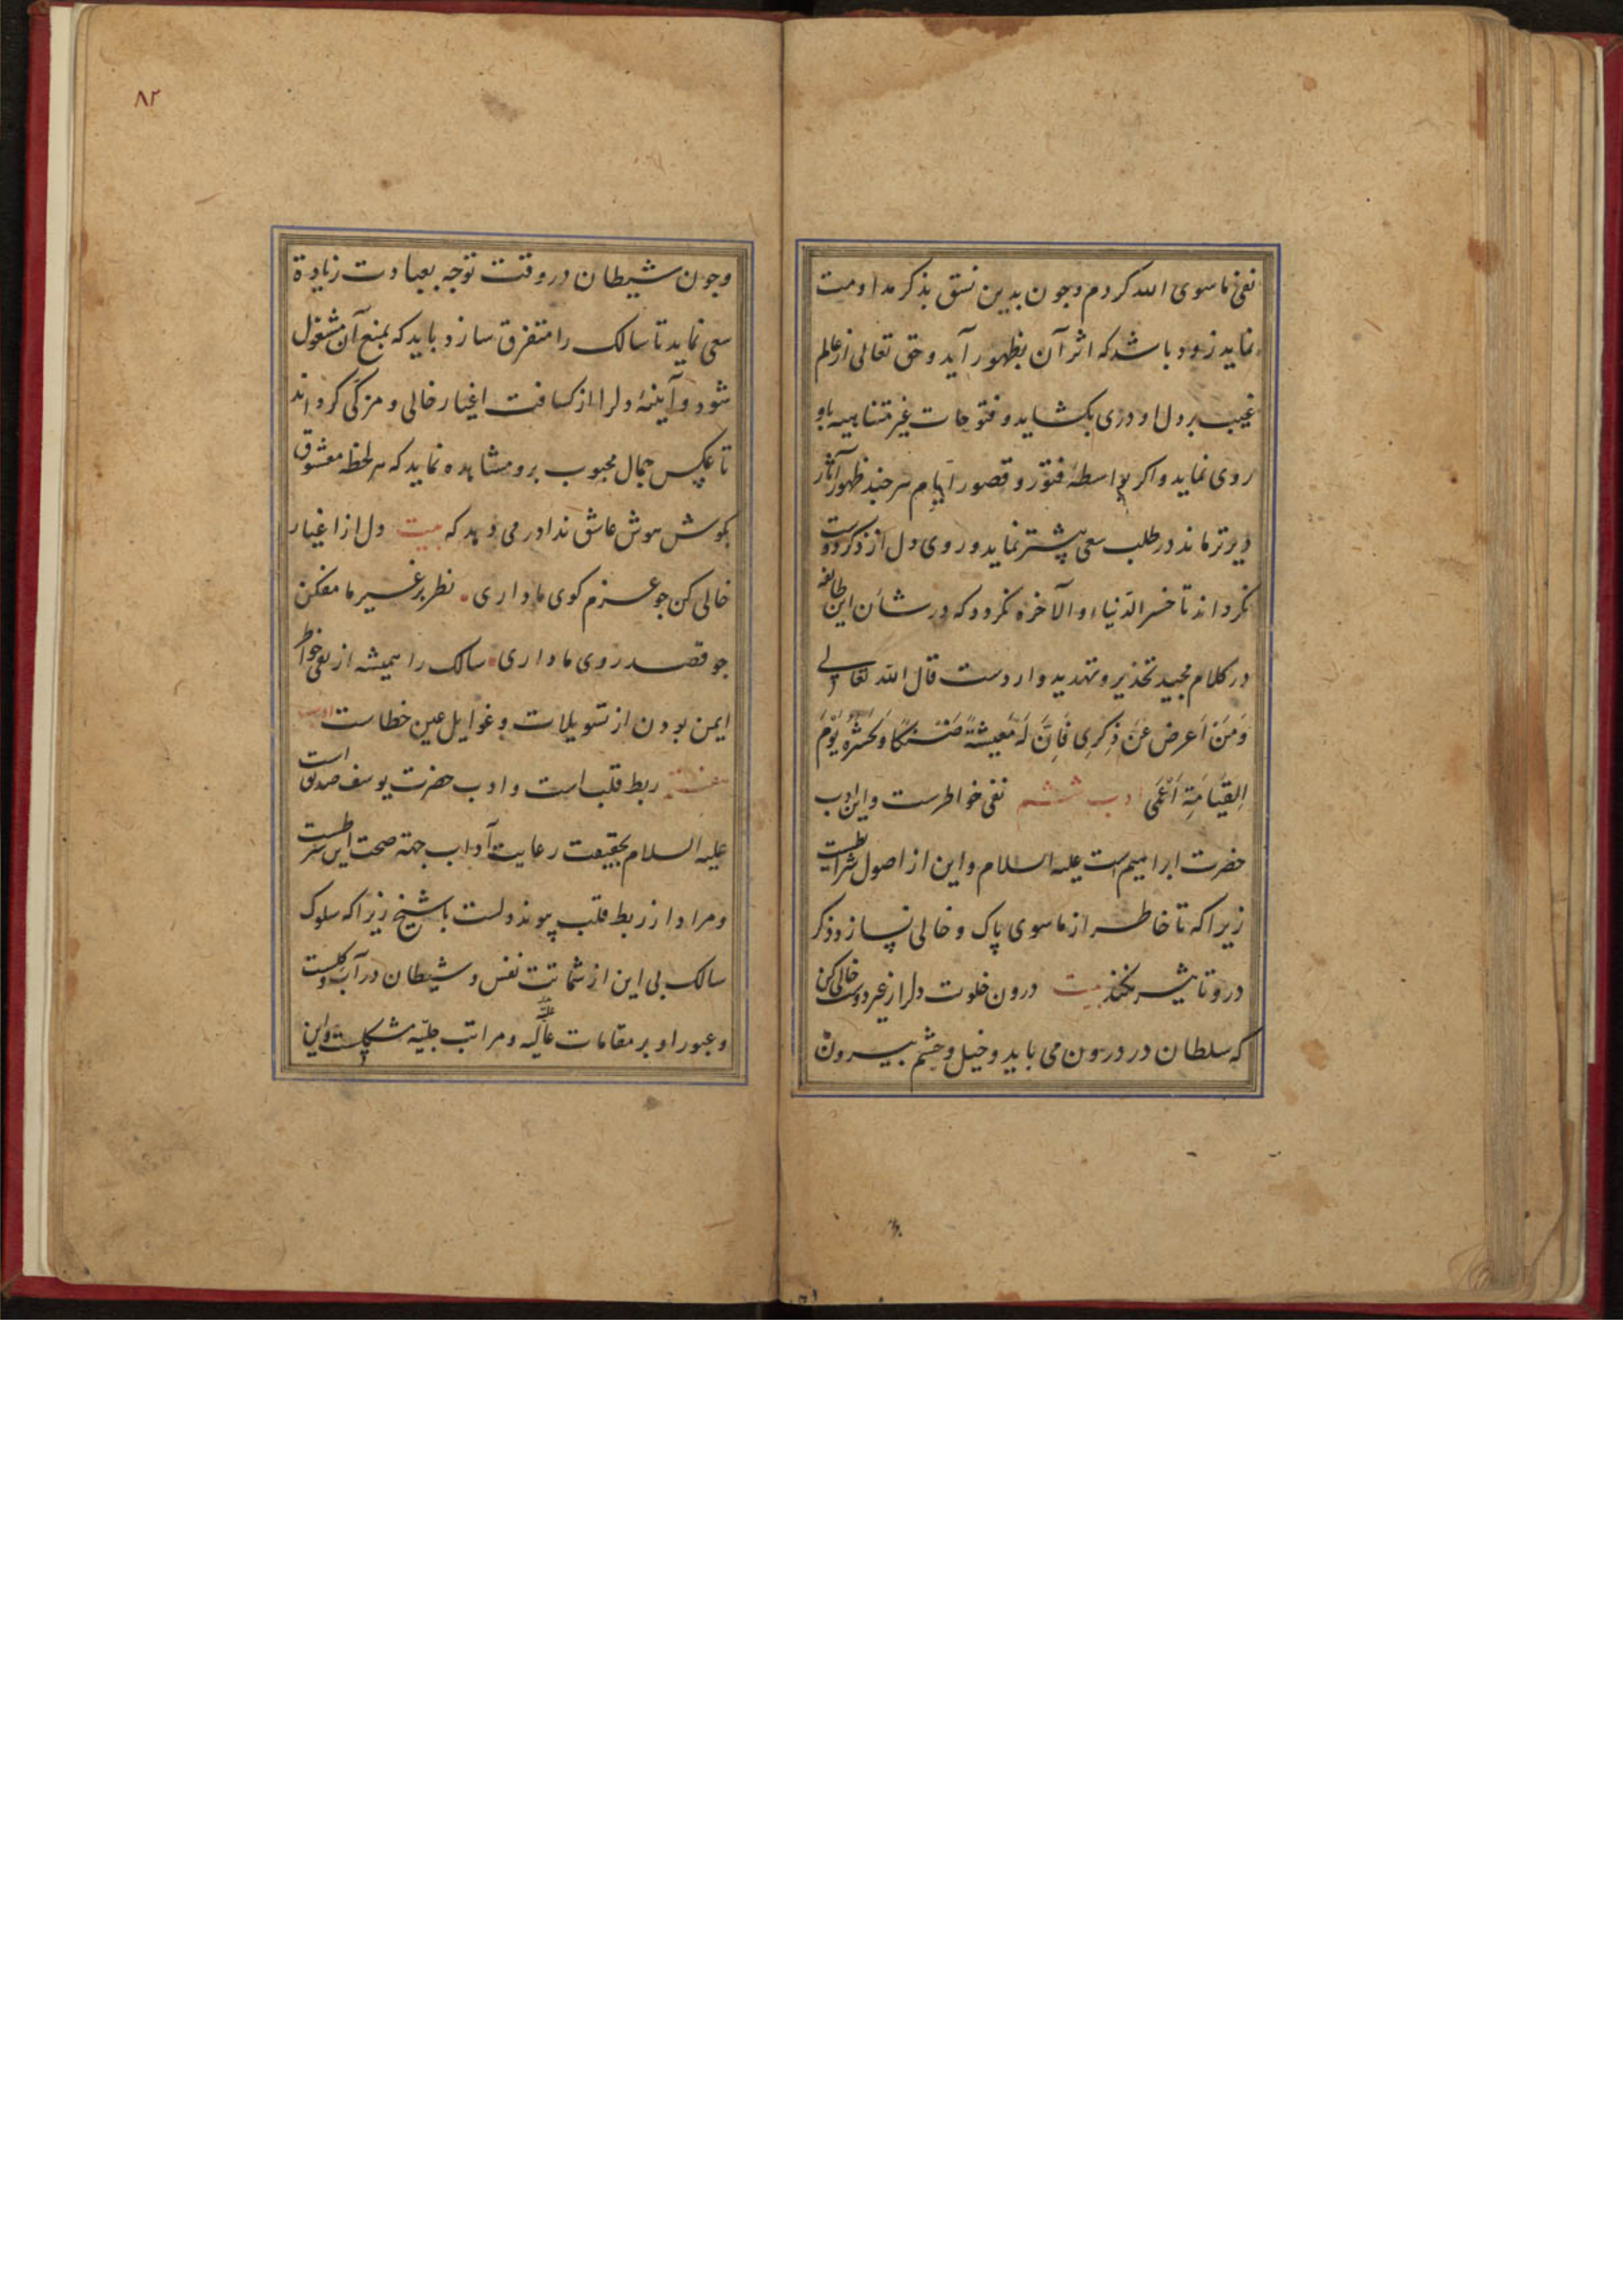 نفی ماسوی الله کردم وجون بدین نسق بذکر مداومت
نماید زود باشد که اثر آن بظهور آید وحق تعالی از عالم
غیب بر دل او دری بکشاید وفتوحات غیر متناهیه باو
روی نماید واکر بواسطهٔ فتور وقصور ایام هر جند ظهور آثار
دیرتر ماند در طلب سعی بیشتر نماید وروی دل از ذکر دوست
نکرداند تا خسر الدنیا والآخره نکردد که در شأن این طایفه
در کلام مجید تحذیر وتهدید واردست قال الله تعالی
وَمَنْ اَعرض عَنْ ذِکرِی فَاِنَّ لَهُ مَعیشَةً ضَنْکًا وَنَحْشُرُهُ یَوْمَ
اِلقیَامَةِ اَعْمَی ادب ششم نفی خواطرست واین ادب
حضرت ابراهیم است علیه السلام واین از اصول شرایطست
زیرا که تا خاطر از ماسوی پاک وخالی نسازد ذکر
درو تاثیر نکند بیت درون خلوت دلرا ز غیر دوست خالی کن
که سلطان در درون می باید وخیل وحشم بیرون
٨٢
وجون شیطان در وقت توجه بعبادت زیادة
سعی نماید تا سالک را متفرق سازد باید که بمنع آن مشغول
شود وآینهٔ دلرا از کسافت اغیار خالی ومزکی کرداند
تا عکس جمال محبوب برو مشاهده نماید که هر لحظه معشوق
بکوش هوش عاشق ندا در می دهد که بیت دل از اغیار
خالی کن جو عزم کوی ما داری ۰ نظر بر غیر ما مفکن
جو قصد روی ما داری ۰ سالک را همیشه از نفی خواطر
ایمن بودن از تسویلات وغوایل عین خطاست ادب
هفتم ربط قلب است وادب حضرت یوسف صدیق است
علیه السلام بحقیقت رعایت آداب جهة صحت این شرطست
ومراد از ربط قلب پیوند دلست با شیخ زیرا که سلوک
سالک بی این از شماتت نفس وشیطان در آب وکلست
وعبور او بر مقامات عالیه ومراتب جلیّه مشکلست واین